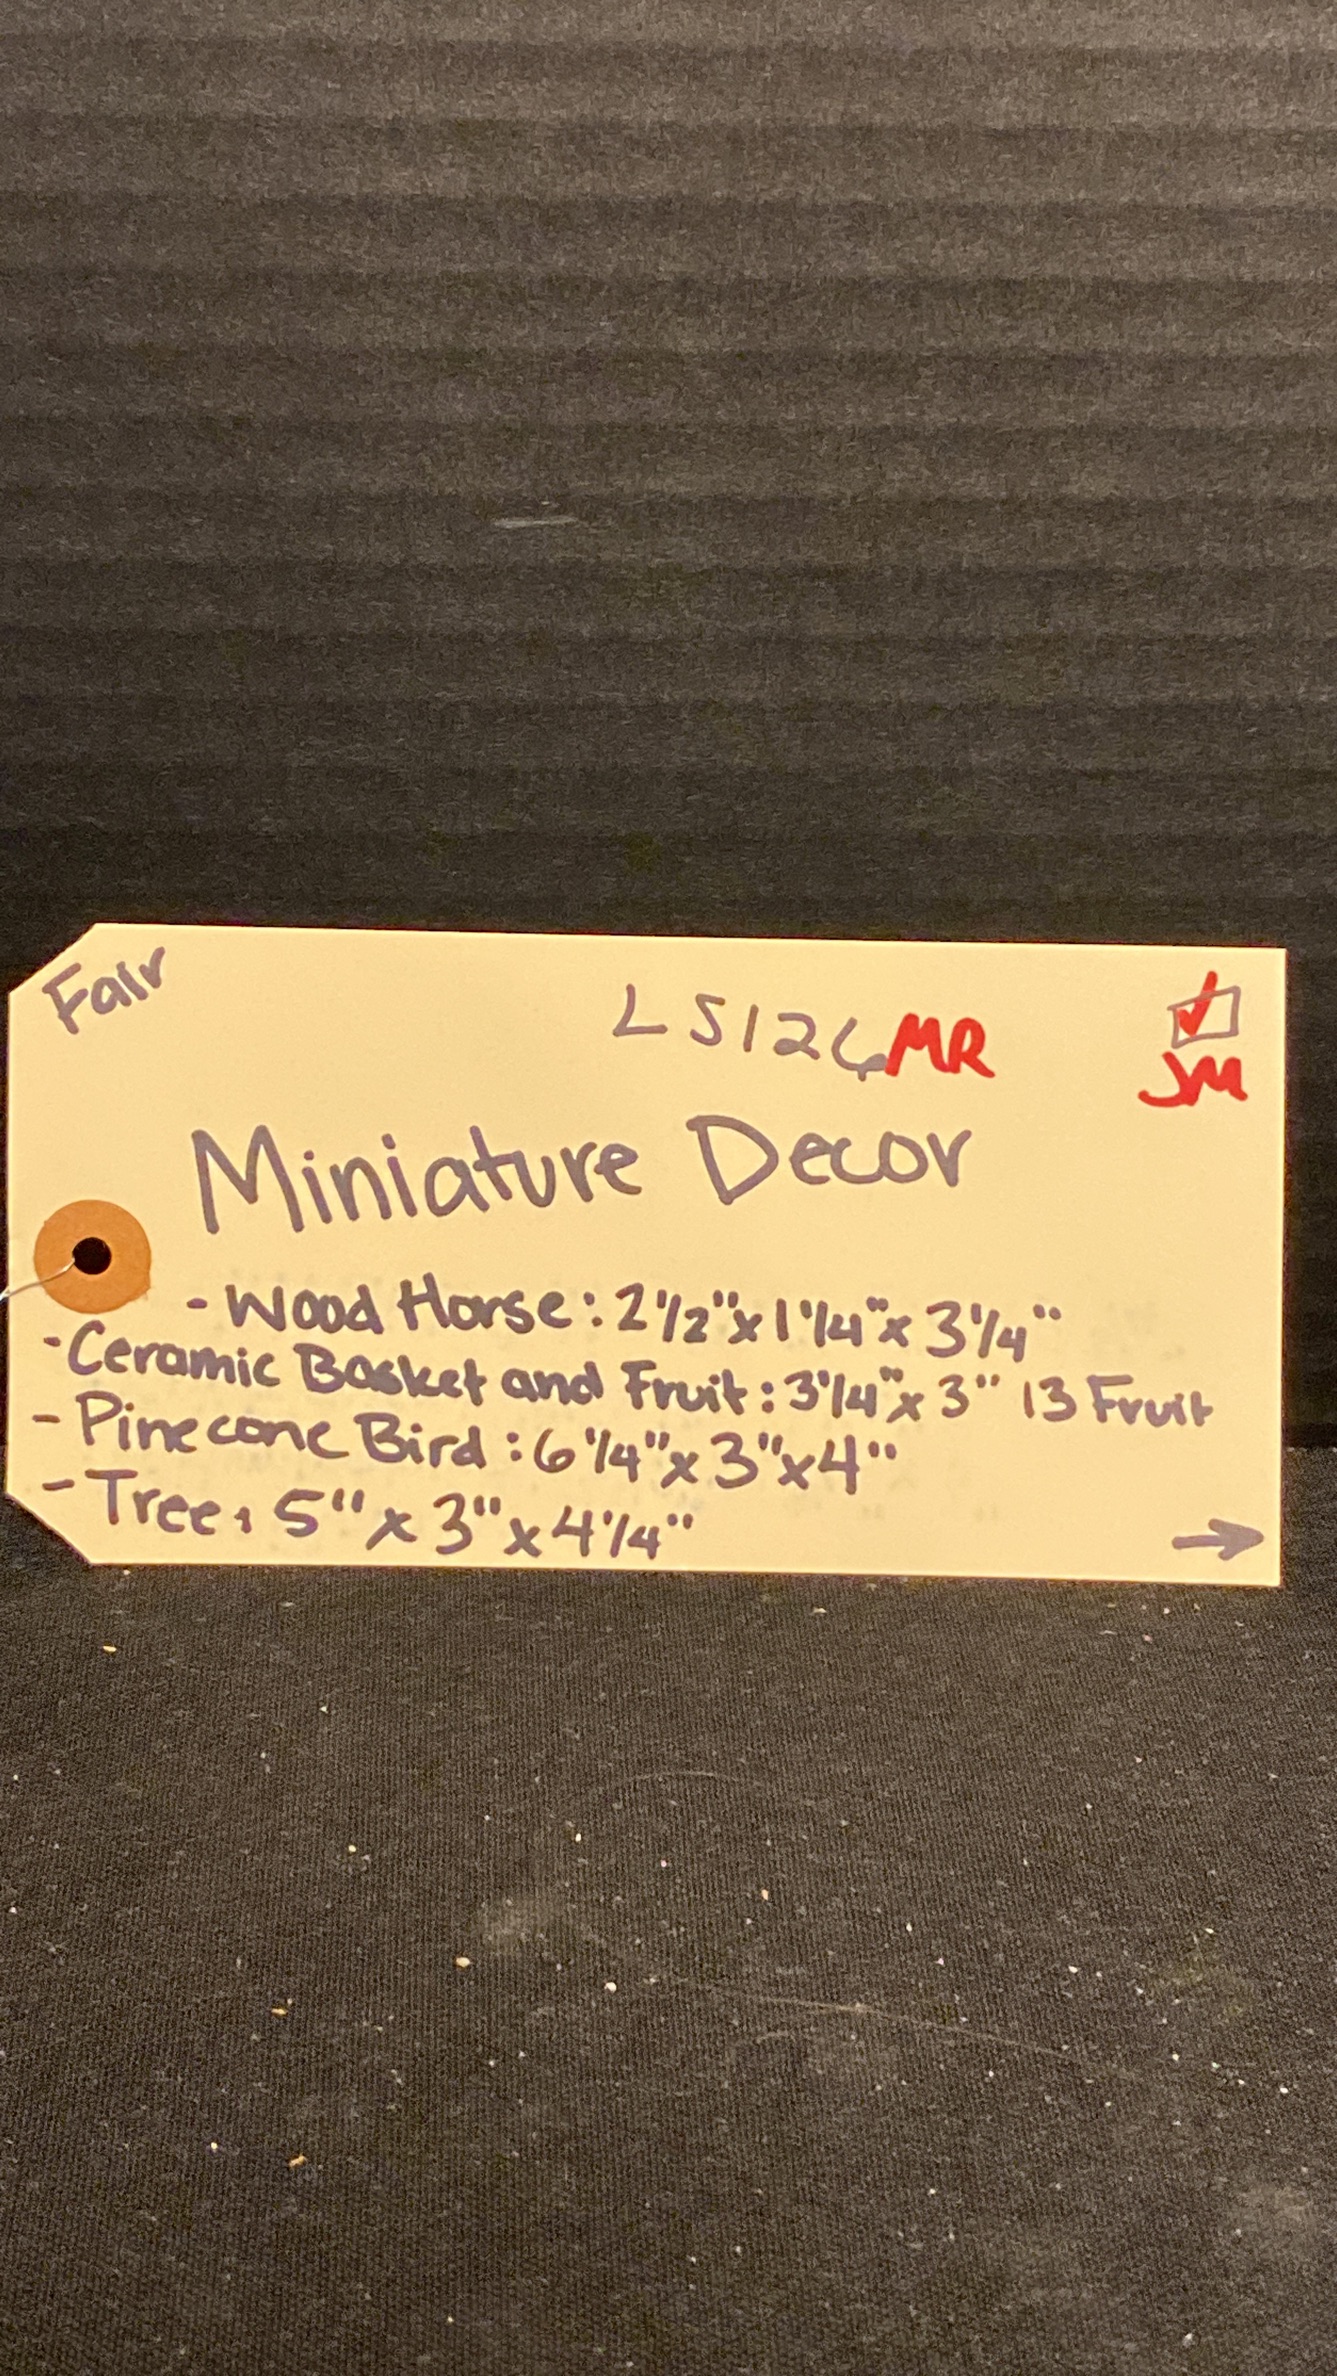 Fair
LS126MR
JM
Miniature Decor
- Wood Horse: 2 1/2" x 1 1/4" x 3 1/4"
- Ceramic Basket and Fruit: 3 1/4" x 3" 13 Fruit
- Pinecone Bird: 6 1/4" x 3" x 4"
- Tree: 5" x 3" x 4 1/4"